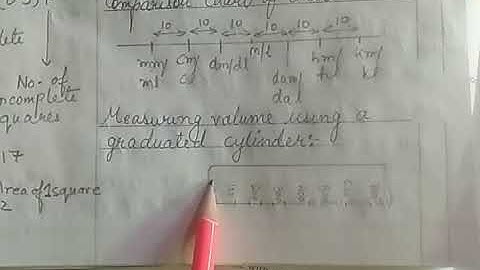 lete
No. of
ncomplete
quares
17
Area of 1 square
2
Comparison Chart of
10 10 10 10 10 10
mm/ cm/ dm/dl m/l dam/ hm/ km/
ml cl dal hl kl
Measuring volume using a
graduated cylinder:-